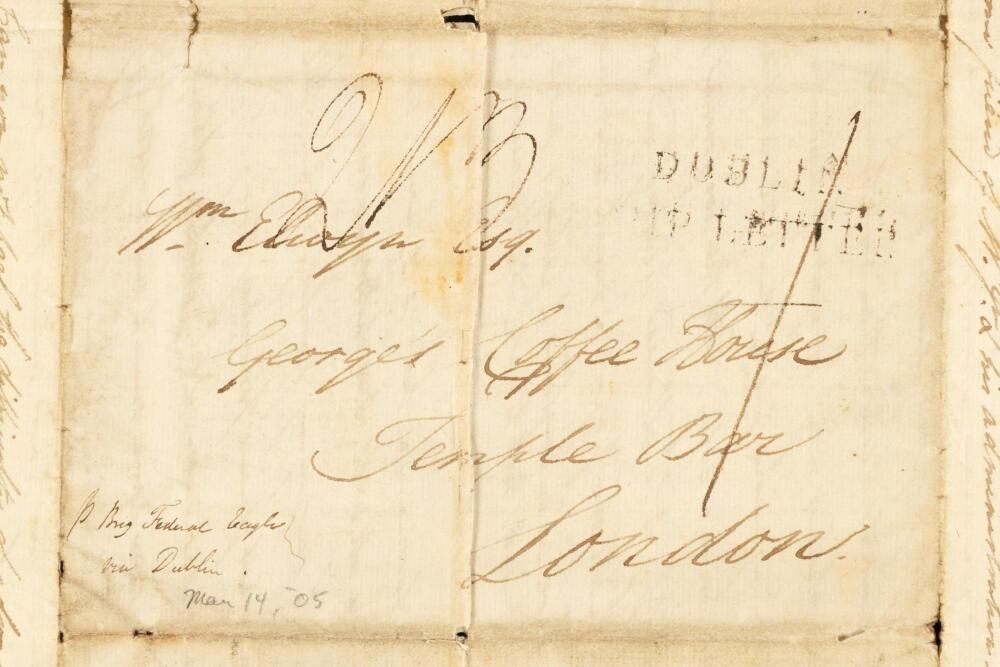 DUBLIN
SHIP LETTER
Wm. Elwyn Esq.
George's Coffee House
Temple Bar
London.
p Brig Federal Eagle
via Dublin.
Mar 14, '05